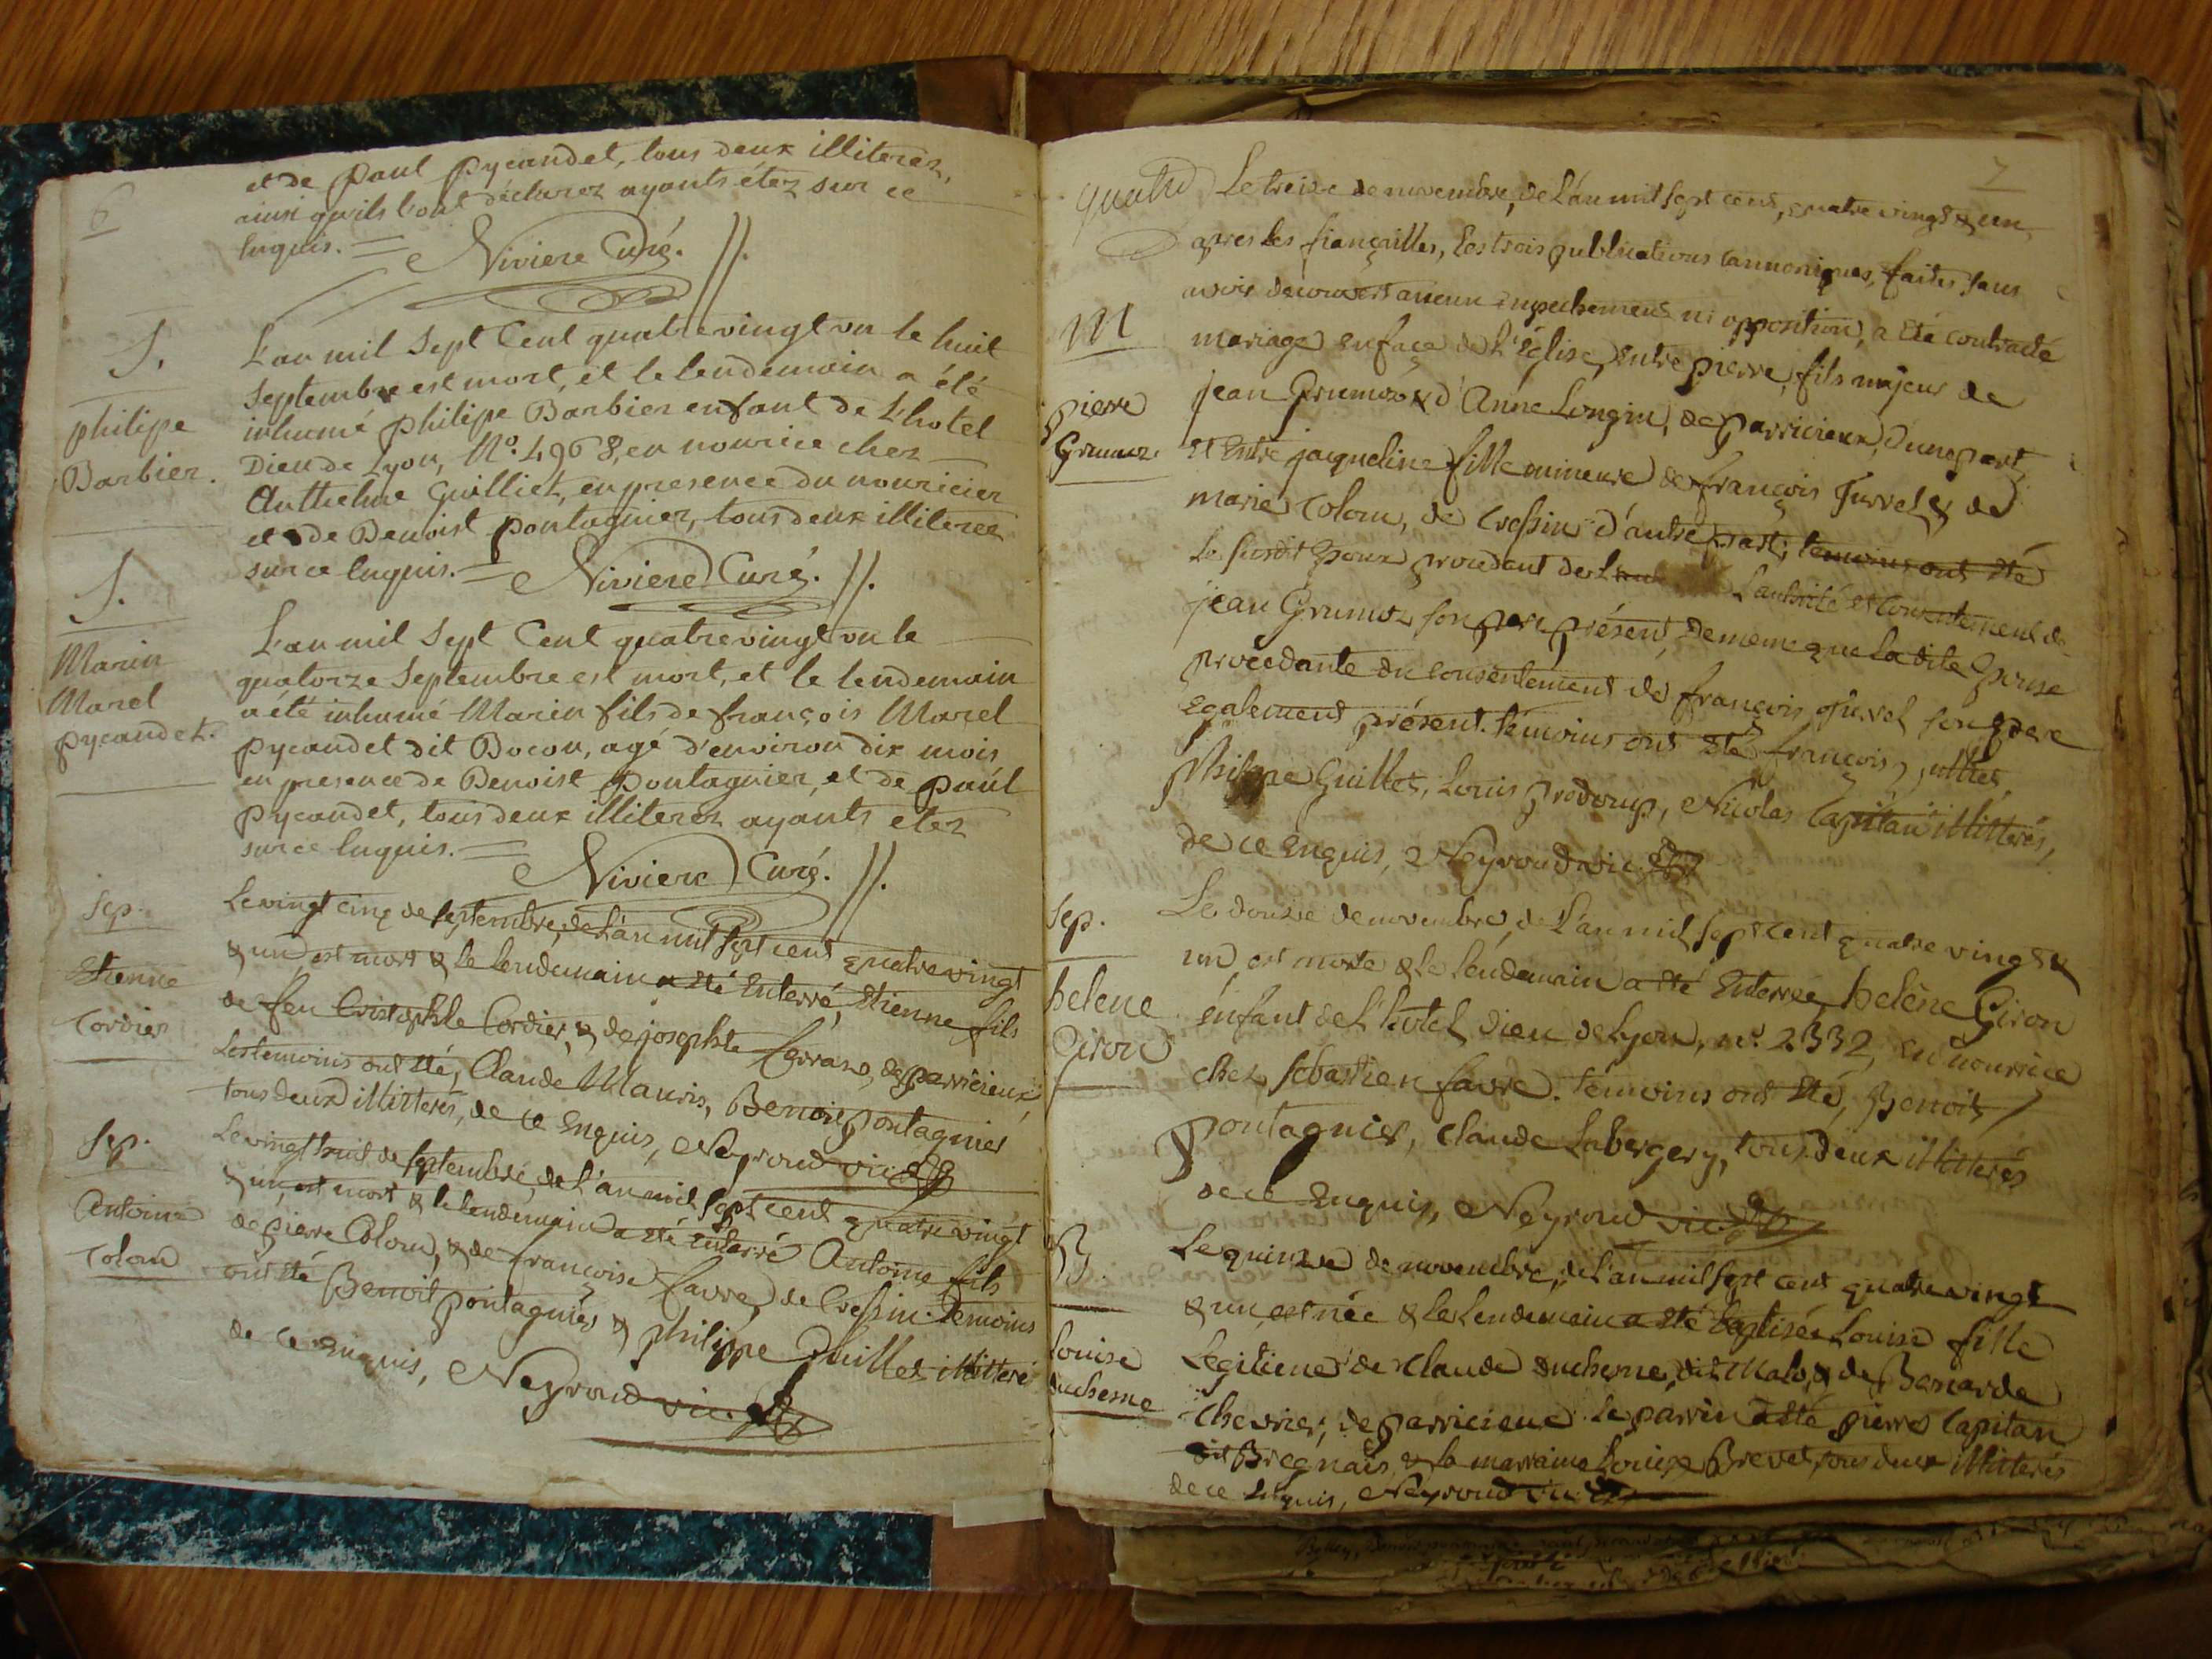 6
et de paul pycaudet, tous deux illiterez,
ainsi qu'ils l'ont déclarez ayants étez sur ce
Enquis. = Niviere Curé. //.
S.
philipe
Barbier.
L'an mil Sept Cent quatrevingt un le huit
Septembre est mort, et le lendemain a été
inhumé philipe Barbier enfant de L'hotel
Dieu de Lyon, N.º 4968, en nourice chez
Anthelme Guilliet, en presence du nouricier
et de Benoist pontagnier, tous deux illiterez
sur ce Enquis. = Niviere Curé. //.
S.
Marin
Marel
pycaudet.
L'an mil Sept Cent quatrevingt un le
quatorze Septembre est mort, et le lendemain
a été inhumé Marin fils de françois Marel
pycaudet dit Bocon, agé d'environ dix mois
en presence de Benoist pontagnier, et de paul
pycaudet, tous deux illiterez ayants etez
sur ce Enquis. = Niviere Curé. //.
Sep.
Etienne
Cordier
Le vingt cinq de septembre, de L'an mil sept cent quatre vingt
& un est mort & le lendemain a été Enterré, Etienne fils
de feu Cristophle Cordier, & de josephte ferrand, de parricieux,
Les temoins ont été, Claude Mauris, Benoit pontagnier
tous deux illitterés, de ce Enquis, Neyroud vic.
Sep.
Antoine
Colom
Le vingt huit de septembre, de L'an mil sept cent quatre vingt
& un, est mort & le lendemain a été Enterré Antoine fils
de pierre Colom, & de françoise favre, de Cressin. Temoins
ont été Benoit pontagnier & philippe Guillet illitteré
de ce Enquis, Neyroud vic.
7
quatre
M
pierre
Grumoz.
Le treize de novembre, de L'an mil sept cent, quatre vingt & un,
apres les fiançailles, Les trois publications cannoniques, faites sans
avoir decouvert aucun empechement ni opposition, a été contracté
mariage en face de L'Eglise, entre pierre, fils majeur de
jean Grumoz & d'Anne Longin, de parricieux, d'une part,
Et Entre jaqueline fille mineure de françois Jurvel & de
marie Colom, de Cressin d'autre part; temoins ont été
Le susdit Epoux procedant de L'authorité et consentement de
jean Grumoz son pere present, de meme que la dite Epouse
procedante du consentement de françois Jurvel son pere
Egalement présent. témoins ont été françois juillet,
philippe Guillet, Louis prodoup, Nicolas Capitan illitterés,
de ce Enquis, Neyroud vic.
Sep.
helene
Giron
Le douze de novembre, de L'an mil, sept cent quatre vingt &
un est morte & le lendemain a été Enterrée, helène Giron
enfant de L'hotel Dieu de Lyon, n.º 2332, en nourrice
chez sébastien favre. témoins ont été, Benoit
pontagnier, Claude Labergery, tous deux illitterés
de ce Enquis, Neyroud vic.
B.
Louise
ducheme
Le quinze de novembre, de L'an mil sept cent quatre vingt
& un est née & le lendemain a été baptisée Louise fille
Legitime de Claude ducherne, dit Malo, & de Bernarde
Chevrier, de parricieux. Le parrin a été pierre Capitan
dit Bregnais, & la marraine Louise Brevet, tous deux illitterés
de ce Enquis, Neyroud vic.